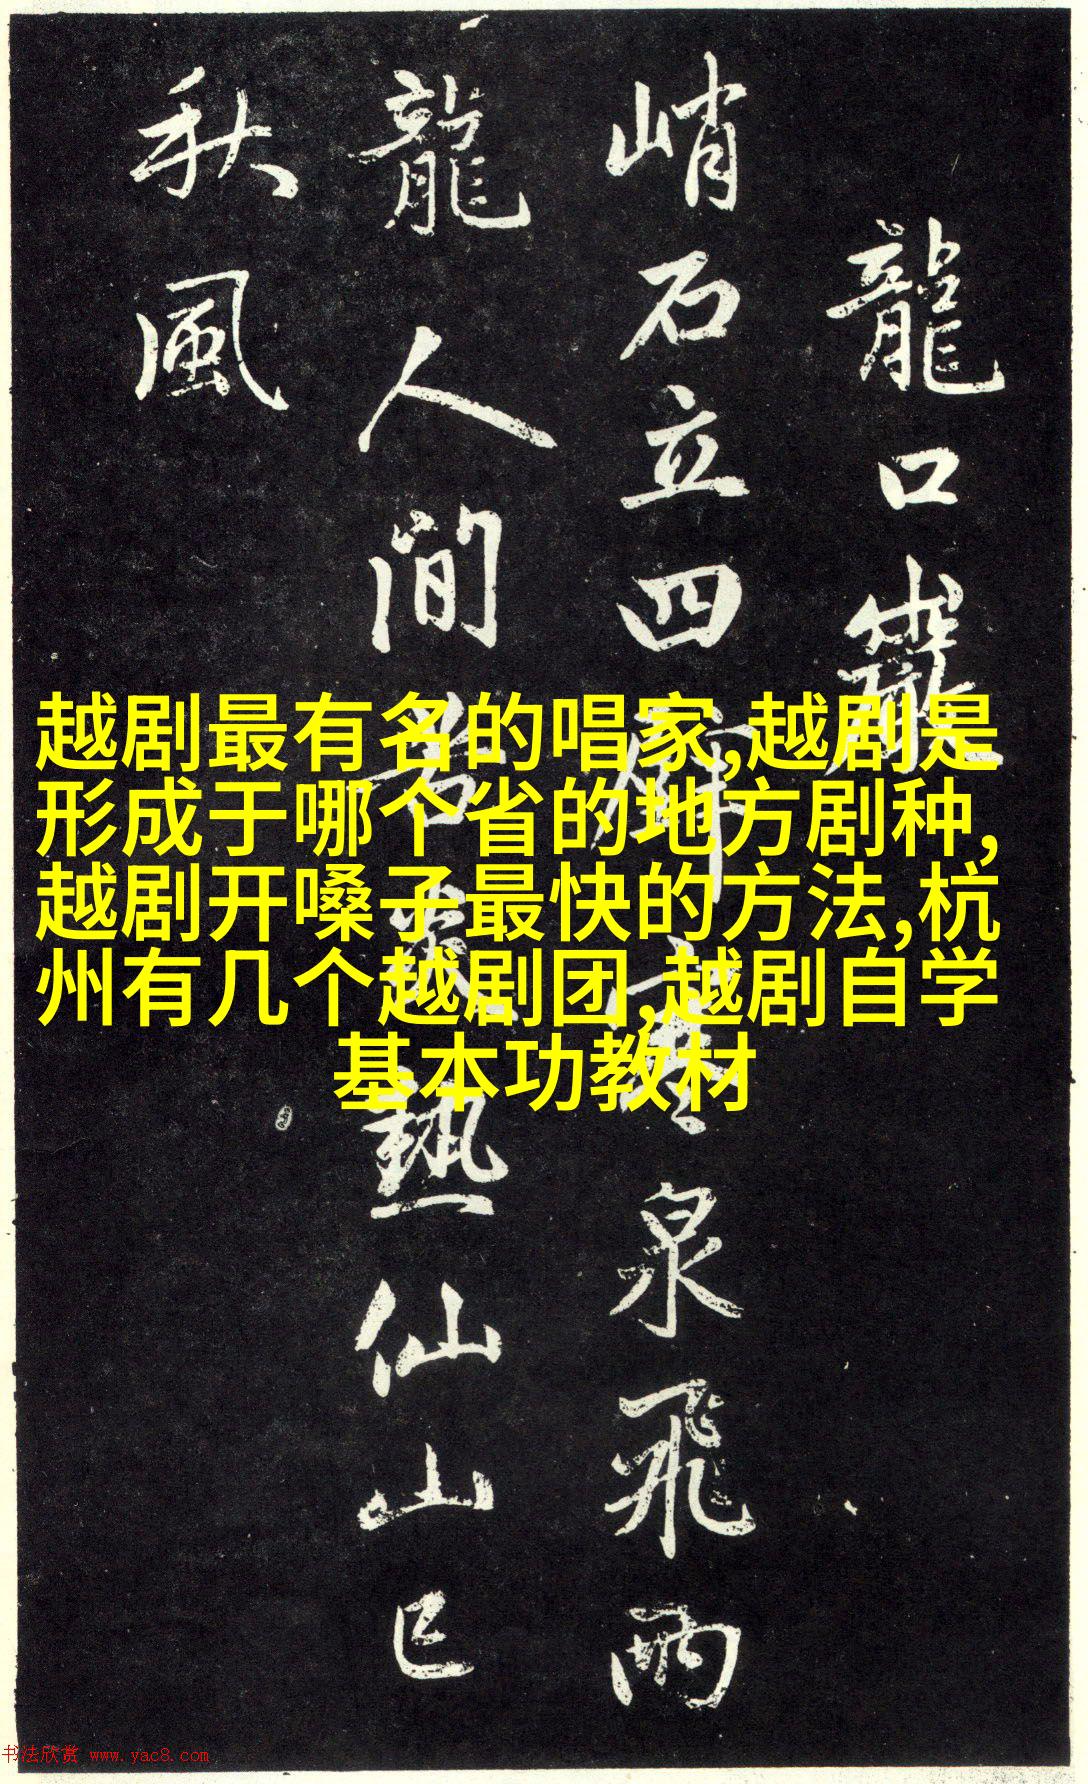 龍口
峭石立四壁寒泉飛兩
龍人間苦炎熱仙山已
秋風
越剧最有名的唱家,越剧是
形成于哪个省的地方剧种,
越剧开嗓子最快的方法,杭
州有几个越剧团,越剧自学
基本功教材
书法欣赏 www.yac8.com